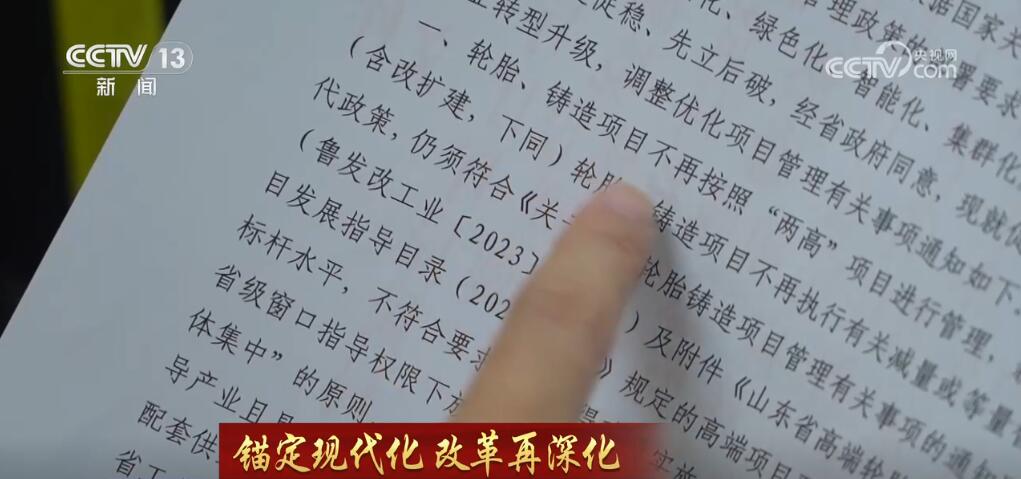 CCTV 13
新闻
央视网
CCTV.com
据国家关
理政策的 署要求
化、绿色化、智能化、集群化
促稳、先立后破，经省政府同意，现就促
业转型升级，调整优化项目管理有关事项通知如下。
一、轮胎、铸造项目不再按照“两高”项目进行管理，
（含改扩建，下同）轮胎 铸造项目不再执行有关减量或等量
代政策，仍须符合《关 轮胎铸造项目管理有关事项的通知
（鲁发改工业〔2023〕 ）及附件《山东省高端轮胎
目发展指导目录（202 》规定的高端项目
标杆水平，不符合要求 实施
省级窗口指导权限下放
体集中”的原则，
导产业且
配套供
省工
锚定现代化 改革再深化